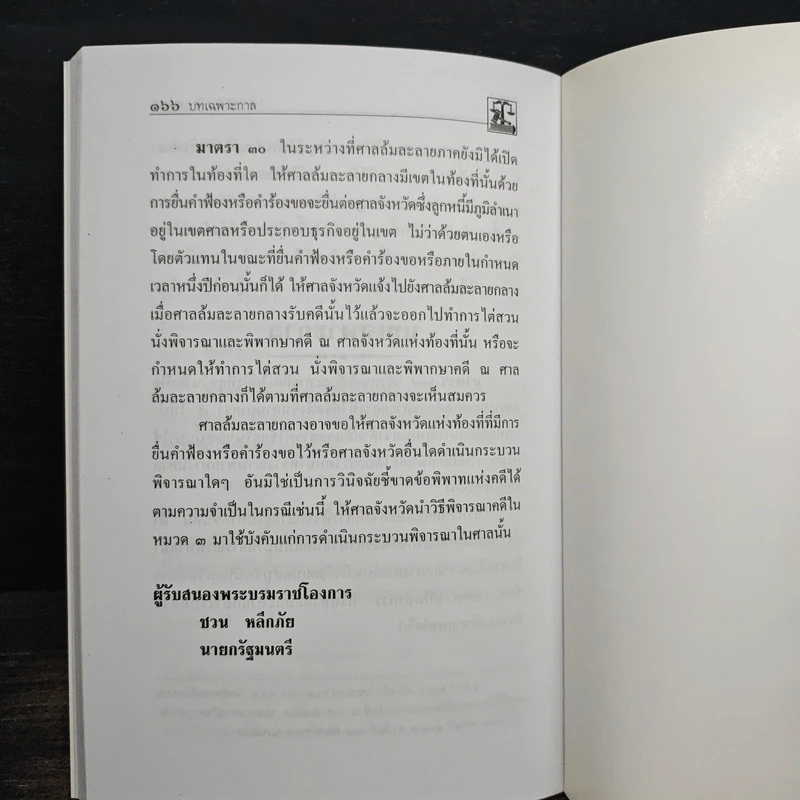 ๑๖๖ บทเฉพาะกาล
มาตรา ๓๐ ในระหว่างที่ศาลล้มละลายภาคยังมิได้เปิด
ทำการในท้องที่ใด ให้ศาลล้มละลายกลางมีเขตในท้องที่นั้นด้วย
การยื่นคำฟ้องหรือคำร้องขอจะยื่นต่อศาลจังหวัดซึ่งลูกหนี้มีภูมิลำเนา
อยู่ในเขตศาลหรือประกอบธุรกิจอยู่ในเขต ไม่ว่าด้วยตนเองหรือ
โดยตัวแทนในขณะที่ยื่นคำฟ้องหรือคำร้องขอหรือภายในกำหนด
เวลาหนึ่งปีก่อนนั้นก็ได้ ให้ศาลจังหวัดแจ้งไปยังศาลล้มละลายกลาง
เมื่อศาลล้มละลายกลางรับคดีนั้นไว้แล้วจะออกไปทำการไต่สวน
นั่งพิจารณาและพิพากษาคดี ณ ศาลจังหวัดแห่งท้องที่นั้น หรือจะ
กำหนดให้ทำการไต่สวน นั่งพิจารณาและพิพากษาคดี ณ ศาล
ล้มละลายกลางก็ได้ตามที่ศาลล้มละลายกลางจะเห็นสมควร
ศาลล้มละลายกลางอาจขอให้ศาลจังหวัดแห่งท้องที่ที่มีการ
ยื่นคำฟ้องหรือคำร้องขอไว้หรือศาลจังหวัดอื่นใดดำเนินกระบวน
พิจารณาใดๆ อันมิใช่เป็นการวินิจฉัยชี้ขาดข้อพิพาทแห่งคดีได้
ตามความจำเป็นในกรณีเช่นนี้ ให้ศาลจังหวัดนำวิธีพิจารณาคดีใน
หมวด ๓ มาใช้บังคับแก่การดำเนินกระบวนพิจารณาในศาลนั้น
ผู้รับสนองพระบรมราชโองการ
ชวน หลีกภัย
นายกรัฐมนตรี